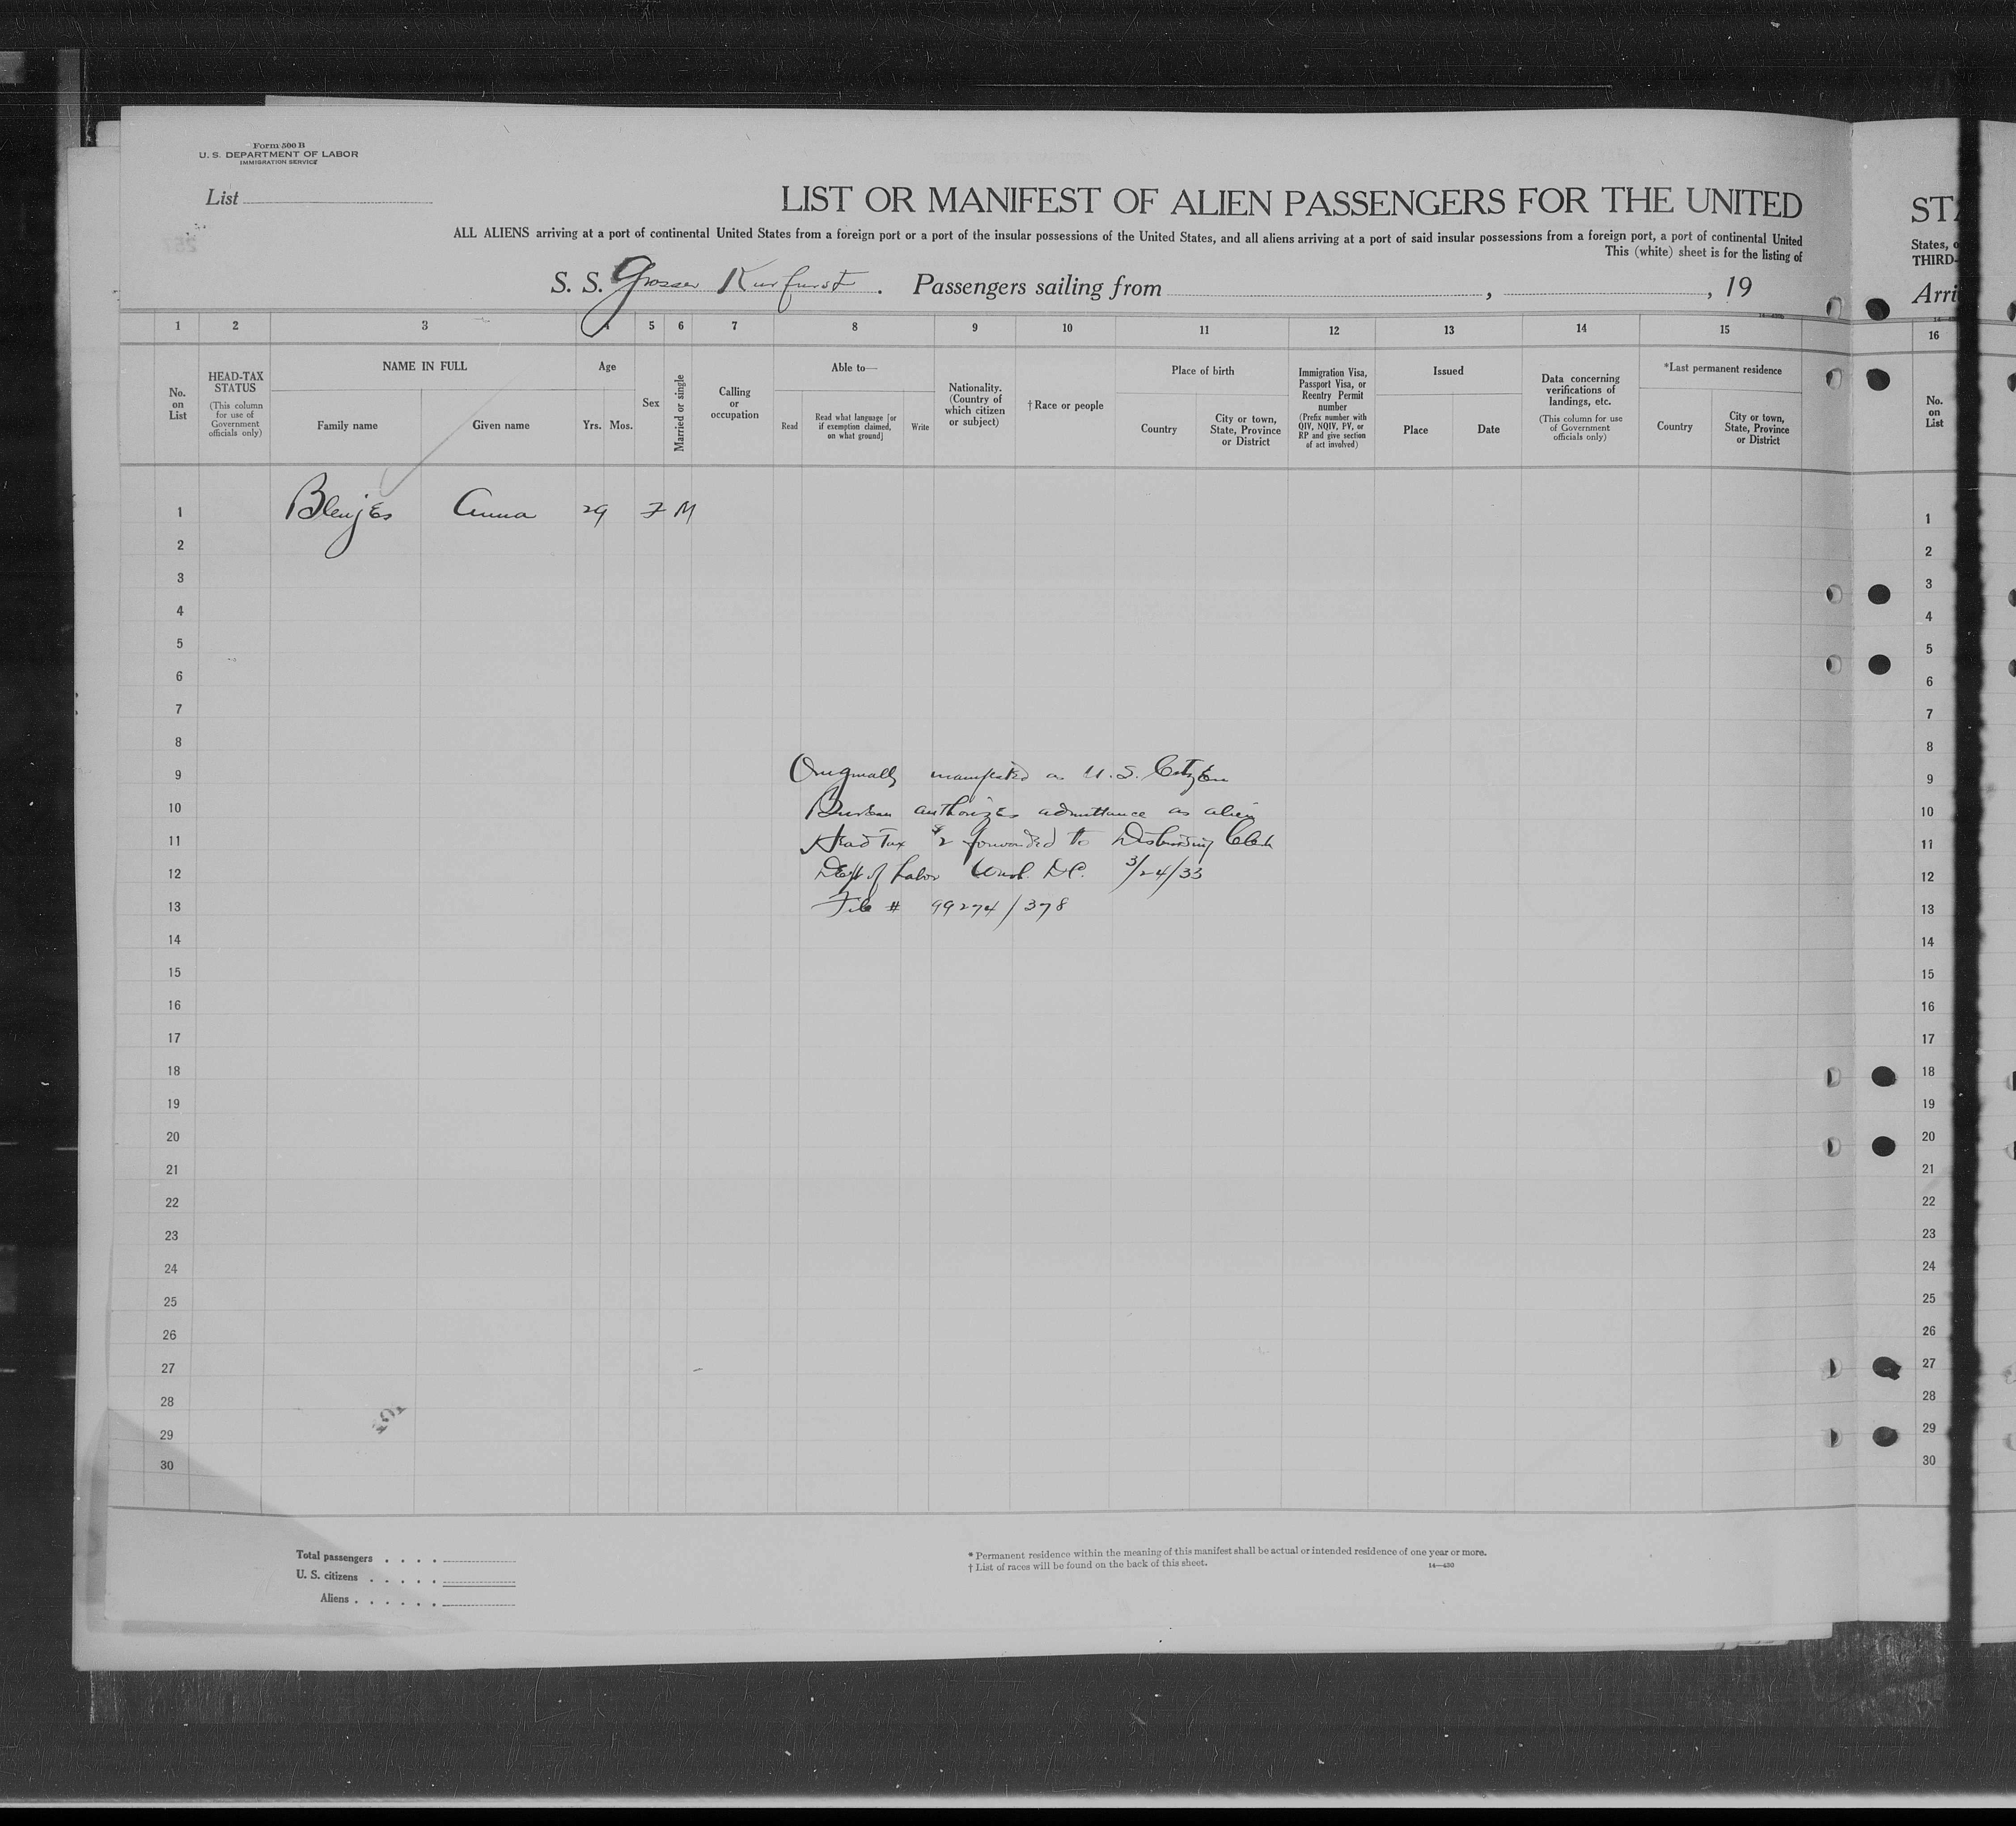 Form 500 B
U. S. DEPARTMENT OF LABOR
IMMIGRATION SERVICE
List
LIST OR MANIFEST OF ALIEN PASSENGERS FOR THE UNITED
ALL ALIENS arriving at a port of continental United States from a foreign port or a port of the insular possessions of the United States, and all aliens arriving at a port of said insular possessions from a foreign port, a port of continental United
This (white) sheet is for the listing of
S. S. Grosser Kurfurst . Passengers sailing from , , 19
1 2 3 4 5 6 7 8 9 10 11 12 13 14 15
No. on List
HEAD-TAX STATUS
(This column for use of Government officials only)
NAME IN FULL
Family name
Given name
Age
Yrs. Mos.
Sex
Married or single
Calling or occupation
Able to—
Read
Read what language [or if exemption claimed, on what ground]
Write
Nationality. (Country of which citizen or subject)
† Race or people
Place of birth
Country
City or town, State, Province or District
Immigration Visa, Passport Visa, or Reentry Permit number
(Prefix number with QIV, NQIV, PV, or RP and give section of act involved)
Issued
Place
Date
Data concerning verifications of landings, etc.
(This column for use of Government officials only)
*Last permanent residence
Country
City or town, State, Province or District
1 Anna 29 F M
2
3
4
5
6
7
8
9 Originally manifested as U. S. Citizen
10 Bureau authorizes admittance as alien
11 Head Tax $2 forwarded to Disbursing Clerk
12 Dept of Labor Wash. D.C. 3/24/33
13 File # 99274/378
14
15
16
17
18
19
20
21
22
23
24
25
26
27
28
29
30
Total passengers . . . .
U. S. citizens . . . . .
Aliens . . . . . .
* Permanent residence within the meaning of this manifest shall be actual or intended residence of one year or more.
† List of races will be found on the back of this sheet.
14—430
States, o
THIRD-
Arri
16
No. on List
1
2
3
4
5
6
7
8
9
10
11
12
13
14
15
16
17
18
19
20
21
22
23
24
25
26
27
28
29
30